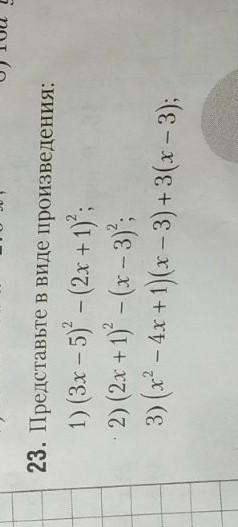 23. Представьте в виде произведения:
1) (3x − 5)² − (2x + 1)²;
2) (2x + 1)² − (x − 3)²;
3) (x² − 4x + 1)(x − 3) + 3(x − 3);